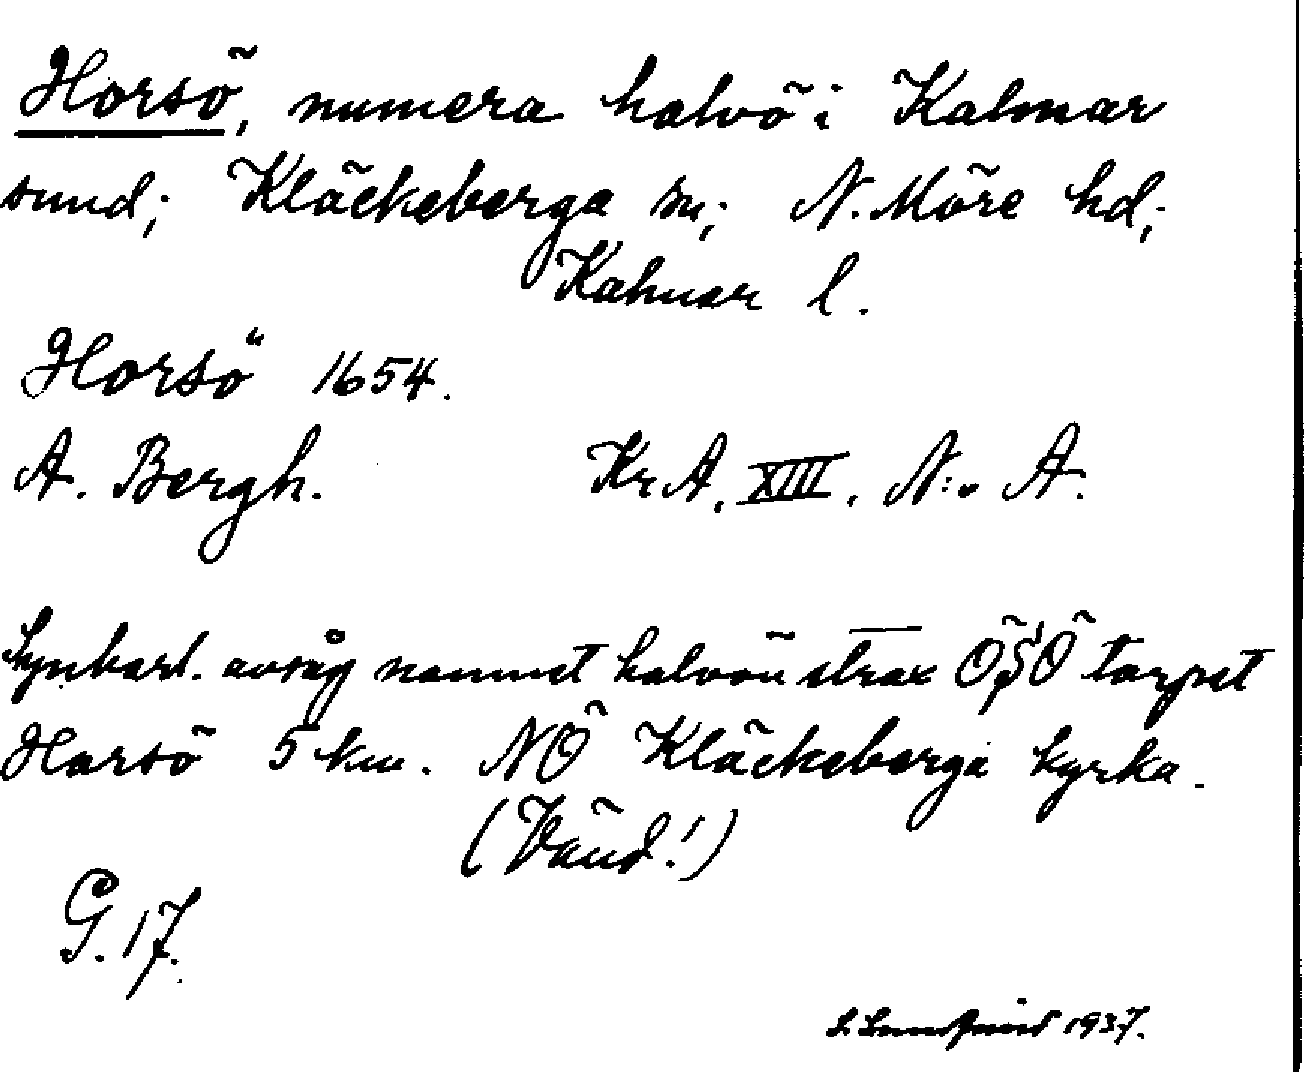 Horsö, numera halvö i Kalmar
sund; Kläckeberga sn; N. Möre hd;
Kalmar l.
Horsö 1654.
A. Bergh. KrA, XIII, N:o A.
Synbarl. avsåg namnet halvön strax OSO torpet
Horsö 5 km. NO Kläckeberga kyrka.
(Vänd!)
G. 17.
1937.